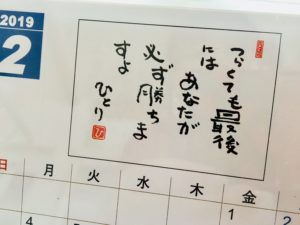 2019
2
つらくても最後
には
あなたが
必ず勝ちま
すよ
ひとり
日 月 火 水 木 金
1
2
4
5
6
7